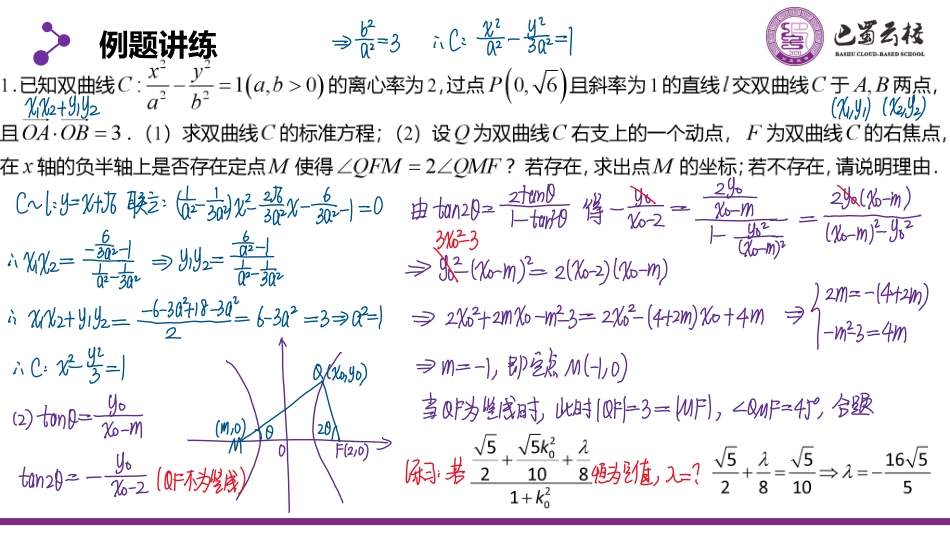 例题讲练
⇒ b²/a² = 3 ∴ C: x²/a² - y²/3a² = 1
巴蜀云校
BASHU CLOUD-BASED SCHOOL
2020
1.已知双曲线 C : x²/a² - y²/b² = 1 (a, b > 0) 的离心率为 2, 过点 P(0, √6) 且斜率为 1 的直线 l 交双曲线 C 于 A, B 两点,
x₁x₂+y₁y₂ (x₁,y₁) (x₂,y₂)
且 OA · OB = 3 . (1) 求双曲线 C 的标准方程; (2) 设 Q 为双曲线 C 右支上的一个动点, F 为双曲线 C 的右焦点,
在 x 轴的负半轴上是否存在定点 M 使得 ∠QFM = 2∠QMF ? 若存在, 求出点 M 的坐标; 若不存在, 请说明理由 .
C~l: y=x+√6 联立: (1/a² - 1/3a²)x² - 2√6/3a² x - 6/3a² - 1 = 0
∴ x₁x₂ = (-6/3a² - 1)/(1/a² - 1/3a²) ⇒ y₁y₂ = (6/a² - 1)/(1/a² - 1/3a²)
∴ x₁x₂+y₁y₂ = (-6-3a²+18-3a²)/2 = 6-3a² = 3 ⇒ a²=1
∴ C: x² - y²/3 = 1
(2) tanθ = y₀/(x₀-m)
tan2θ = - y₀/(x₀-2) (QF不为竖线)
Q(x₀,y₀)
(m,0)
M
θ
2θ
0
F(2,0)
由 tan2θ = 2tanθ/(1-tan²θ) 得 - y₀/(x₀-2) = (2y₀/(x₀-m))/(1 - y₀²/(x₀-m)²) = 2y₀(x₀-m)/((x₀-m)²-y₀²)
3x₀²-3
⇒ y₀²-(x₀-m)² = 2(x₀-2)(x₀-m)
⇒ 2x₀²+2mx₀-m²-3 = 2x₀²-(4+2m)x₀+4m ⇒ { 2m=-(4+2m)
-m²-3=4m
⇒ m=-1, 即定点 M(-1,0)
当QF为竖线时, 此时|QF|=3=|MF|, ∠QMF=45°, 合题
练习: 若 (5/2 + 5k₀²/10 + λ/8)/(1+k₀²) 恒为定值, λ=?
5/2 + λ/8 = 5/10 ⇒ λ = - 16 5/5